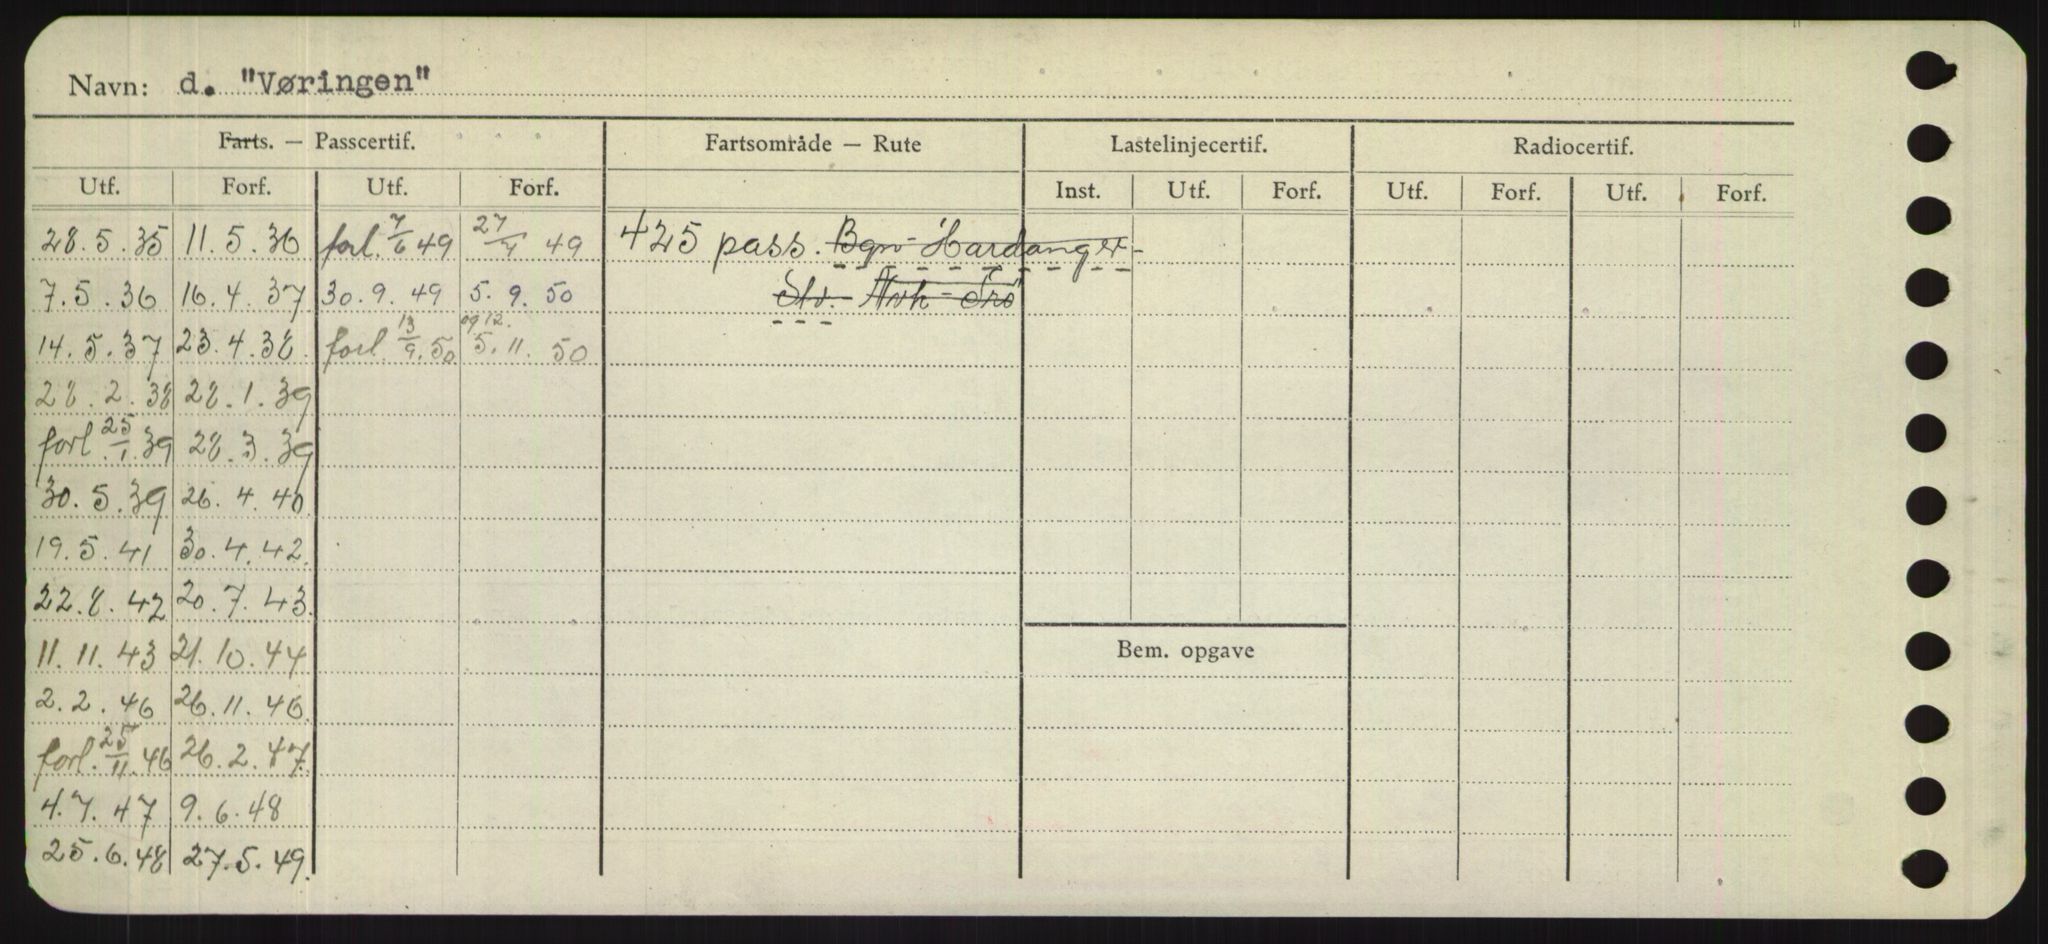 Navn: d. "Vøringen"
Farts. — Passcertif. Fartsområde — Rute Lastelinjecertif. Radiocertif.
Utf. Forf. Utf. Forf. Inst. Utf. Forf. Utf. Forf. Utf. Forf.
28.5.35 11.5.36 forl. 7/6 49 27/7 49 425 pass. Bgn- Hardanger-
7.5.36 16.4.37 30.9.49 5.9.50
14.5.37 23.4.38. forl. 13/9.50 og 12. 5.11.50
28.2.38 28.1.39
forl 25/1.39 28.3.39
30.5.39 26.4.40
19.5.41 30.4.42.
22.8.42 20.7.43.
11.11.43 21.10.44
2.2.46 26.11.46. Bem. opgave
forl. 25/11.46 26.2.47.
4.7.47 9.6.48
25.6.48 27.5.49.